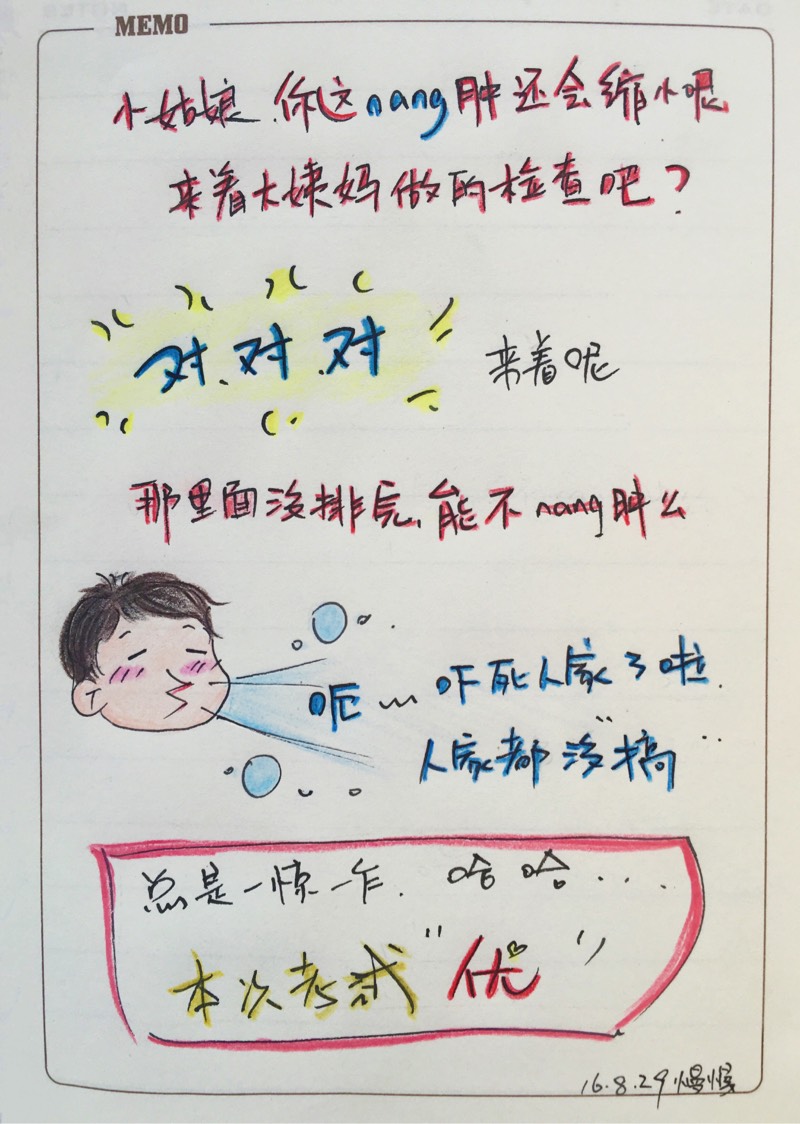 MEMO
小姑娘.你这nang肿还会缩小呢
来着大姨妈做的检查吧？
对.对.对 来着呢
那里面没排完,能不nang肿么
呃~~ 吓死人家了啦.
人家都没“搞”
总是一惊一乍. 哈哈....
本次考试“优”
16.8.29慢慢